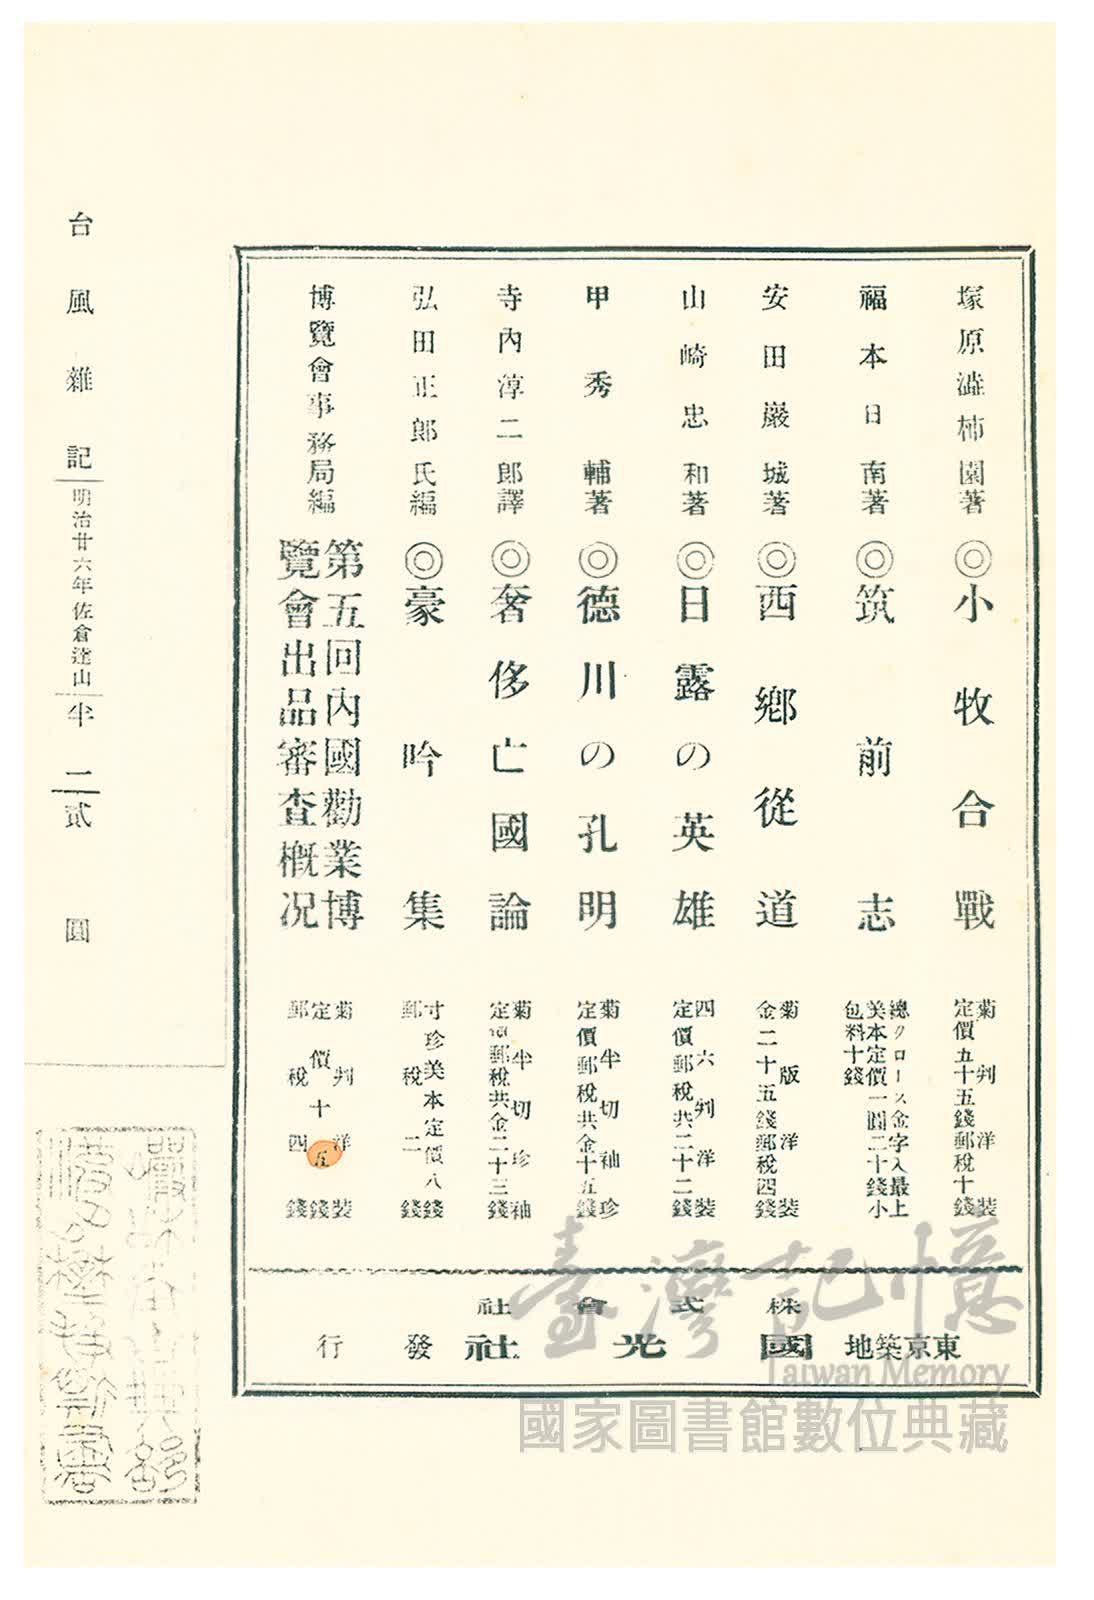 塚原澁柿園著 ◎小牧合戰 菊判洋裝
定價五十五錢郵稅十錢
福本日南著 ◎筑前志 總クロース金字入最上
美本定價一圓二十錢小
包料十錢
安田巖城著 ◎西鄉從道 菊版洋裝
金二十五錢郵稅四錢
山崎忠和著 ◎日露の英雄 四六判洋裝
定價郵稅共二十二錢
甲秀輔著 ◎德川の孔明 菊半切袖珍
定價郵稅共金十五錢
寺內淳二郎譯 ◎奢侈亡國論 菊半切珍袖
定價郵稅共金二十三錢
弘田正郎氏編 ◎豪吟集 寸珍美本定價八錢
郵稅二錢
博覽會事務局編 第五回內國勸業博
覽會出品審查概况 菊判洋裝
定價十五錢
郵稅四錢
東京築地 株式會社
國光社 發行
台風雜記 明治廿六年佐倉達山 半二 貳圓
臺灣記憶
Taiwan Memory
國家圖書館數位典藏